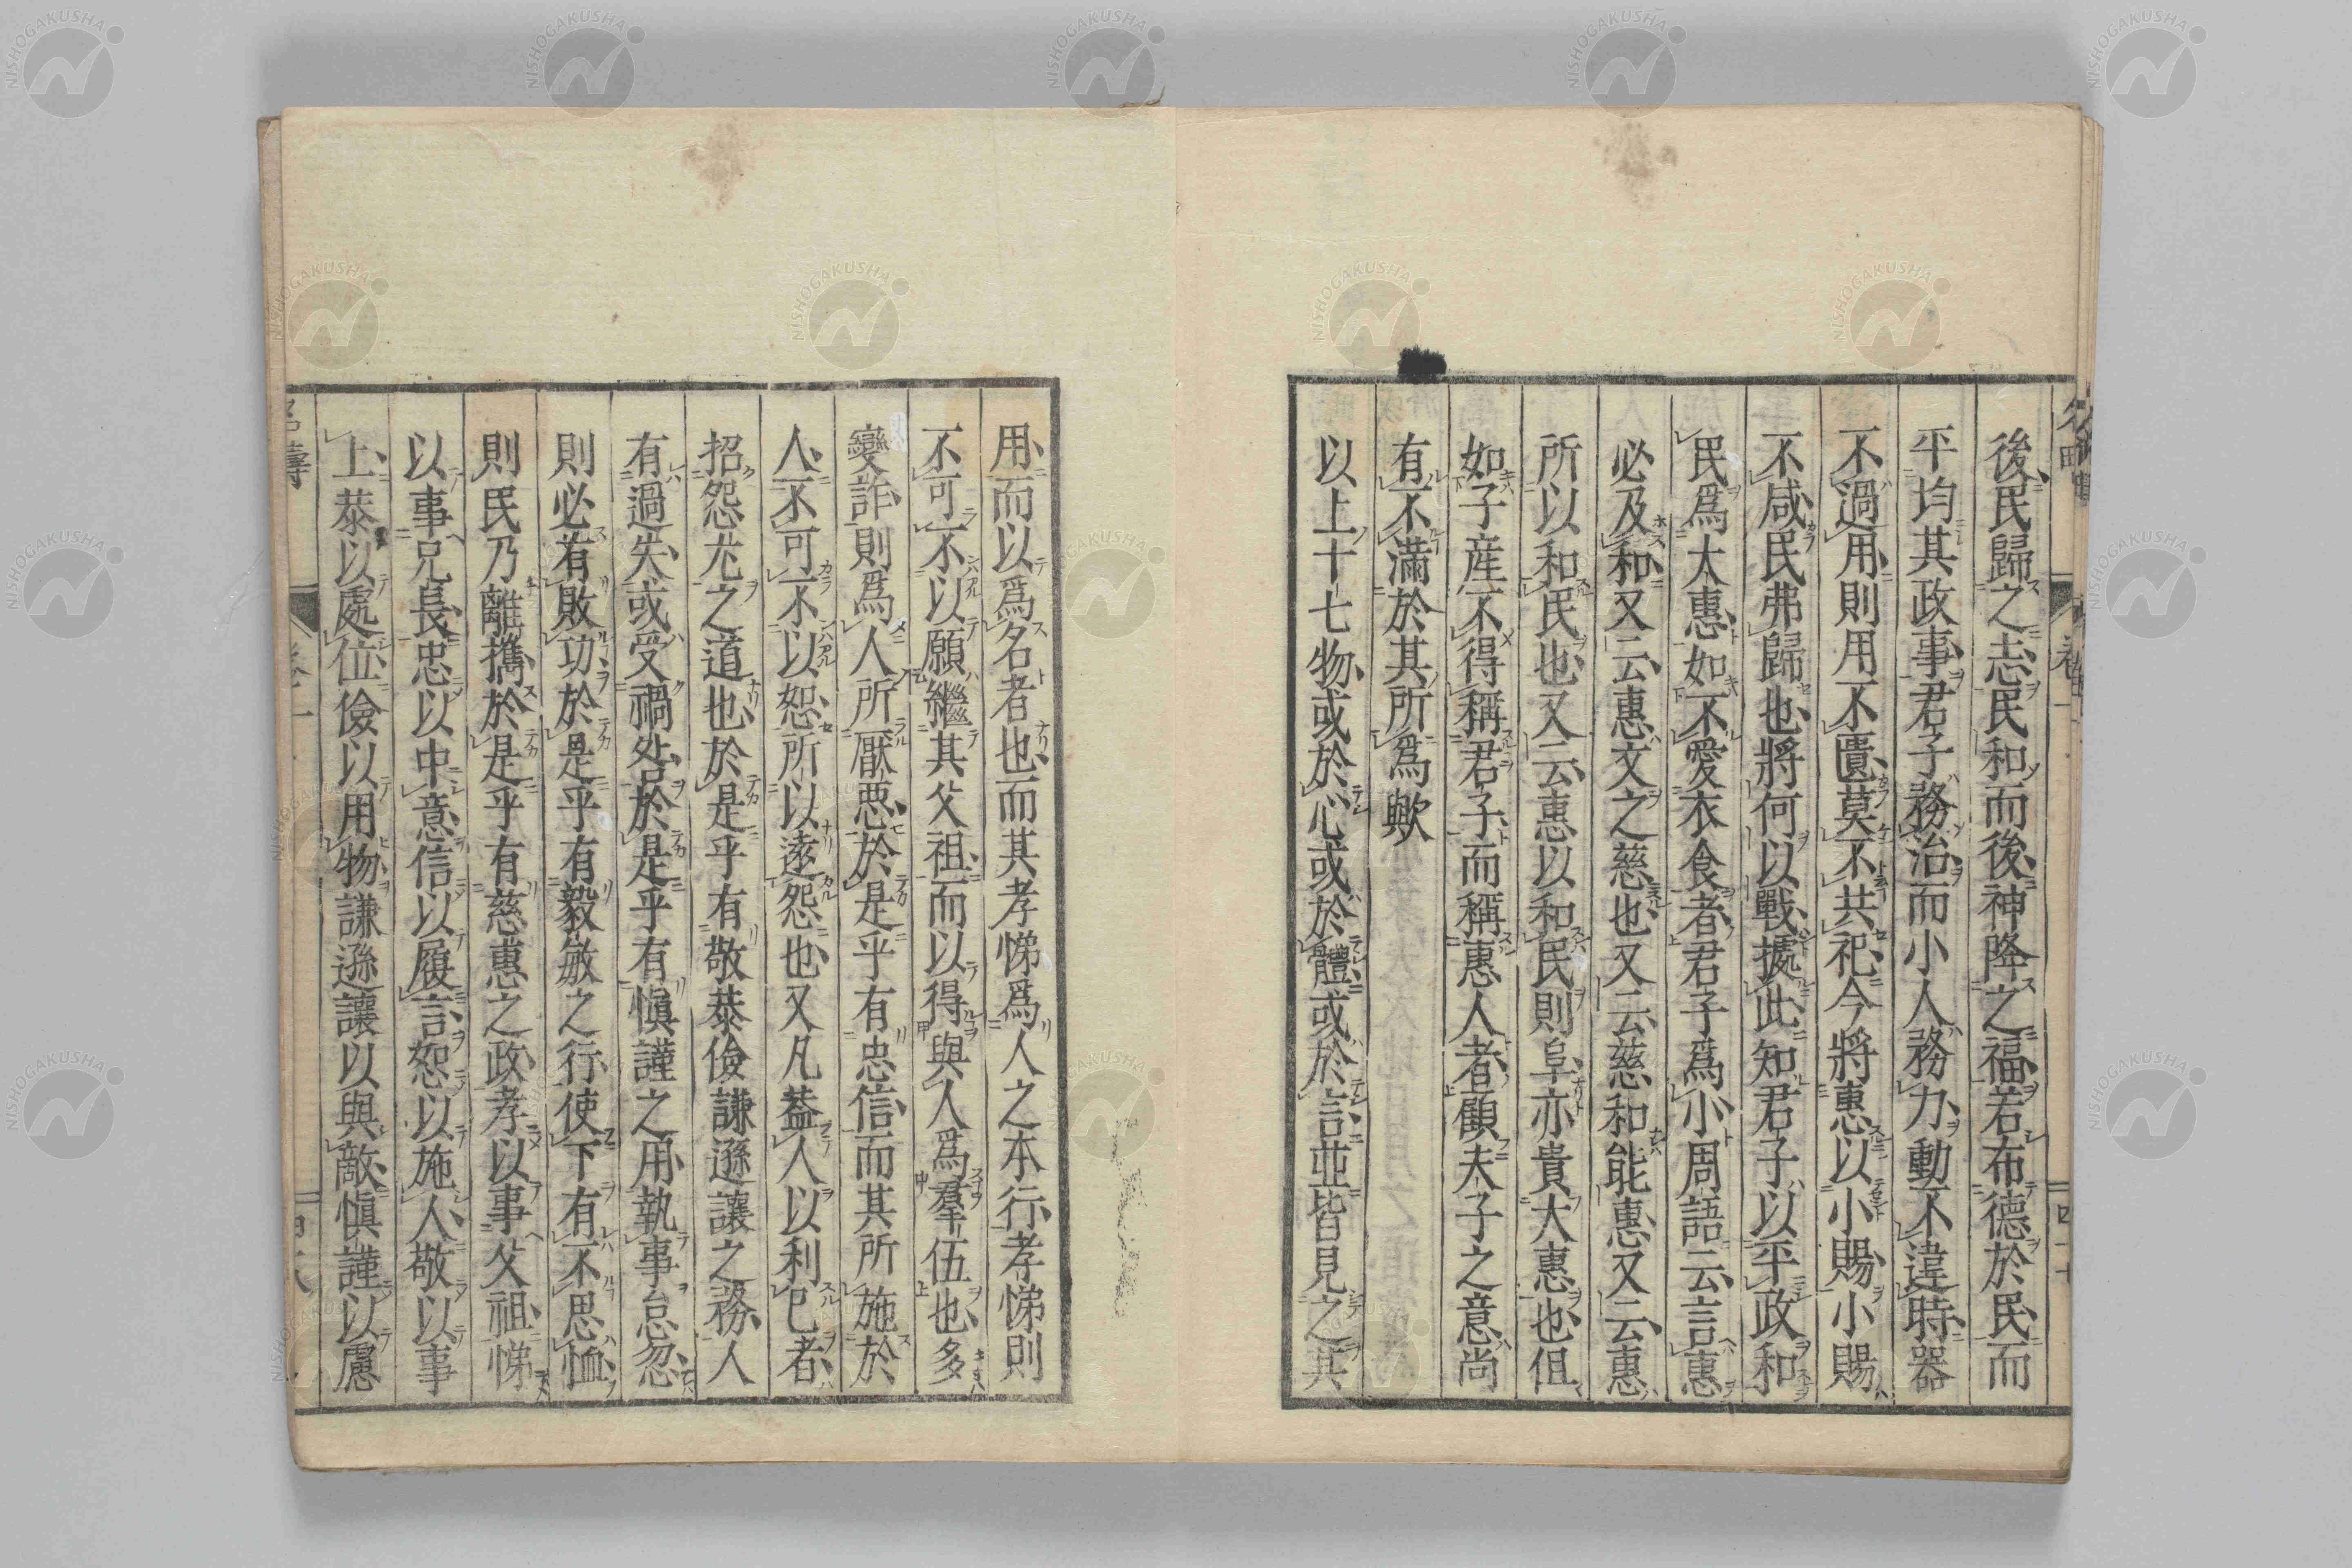 後民歸之志民和而後神降之福若布德於民而
平均其政事君子務治而小人務力動不違時器
不過用則用不匱莫不共祀今將惠以小賜小賜
不咸民弗歸也將何以戰據此知君子以平政和
民爲大惠如不愛衣食者君子爲小周語云言惠
必及和又云惠文之慈也又云慈和能惠又云惠
所以和民也又云惠以和民則阜亦貴大惠也但
如子產不得稱君子而稱惠人者顧夫子之意尚
有不滿於其所爲歟
以上十七物或於心或於體或於言並皆見之其
用而以爲名者也而其孝悌爲人之本行孝悌則
不可不以願繼其父祖而以得與人爲羣伍也多
變詐則爲人所厭惡於是乎有忠信而其所施於
人不可不以恕所以遠怨也又凡益人以利己者
招怨尤之道也於是乎有敬恭儉謙遜讓之務人
有過失或受禍咎於是乎有愼謹之用執事怠忽
則必有敗功於是乎有毅敏之行使下有不思恤
則民乃離攜於是乎有慈惠之政孝以事父祖悌
以事兄長忠以中意信以履言恕以施人敬以事
上恭以處位儉以用物謙遜讓以與敵愼謹以慮
名疇
NISHOGAKUSHA